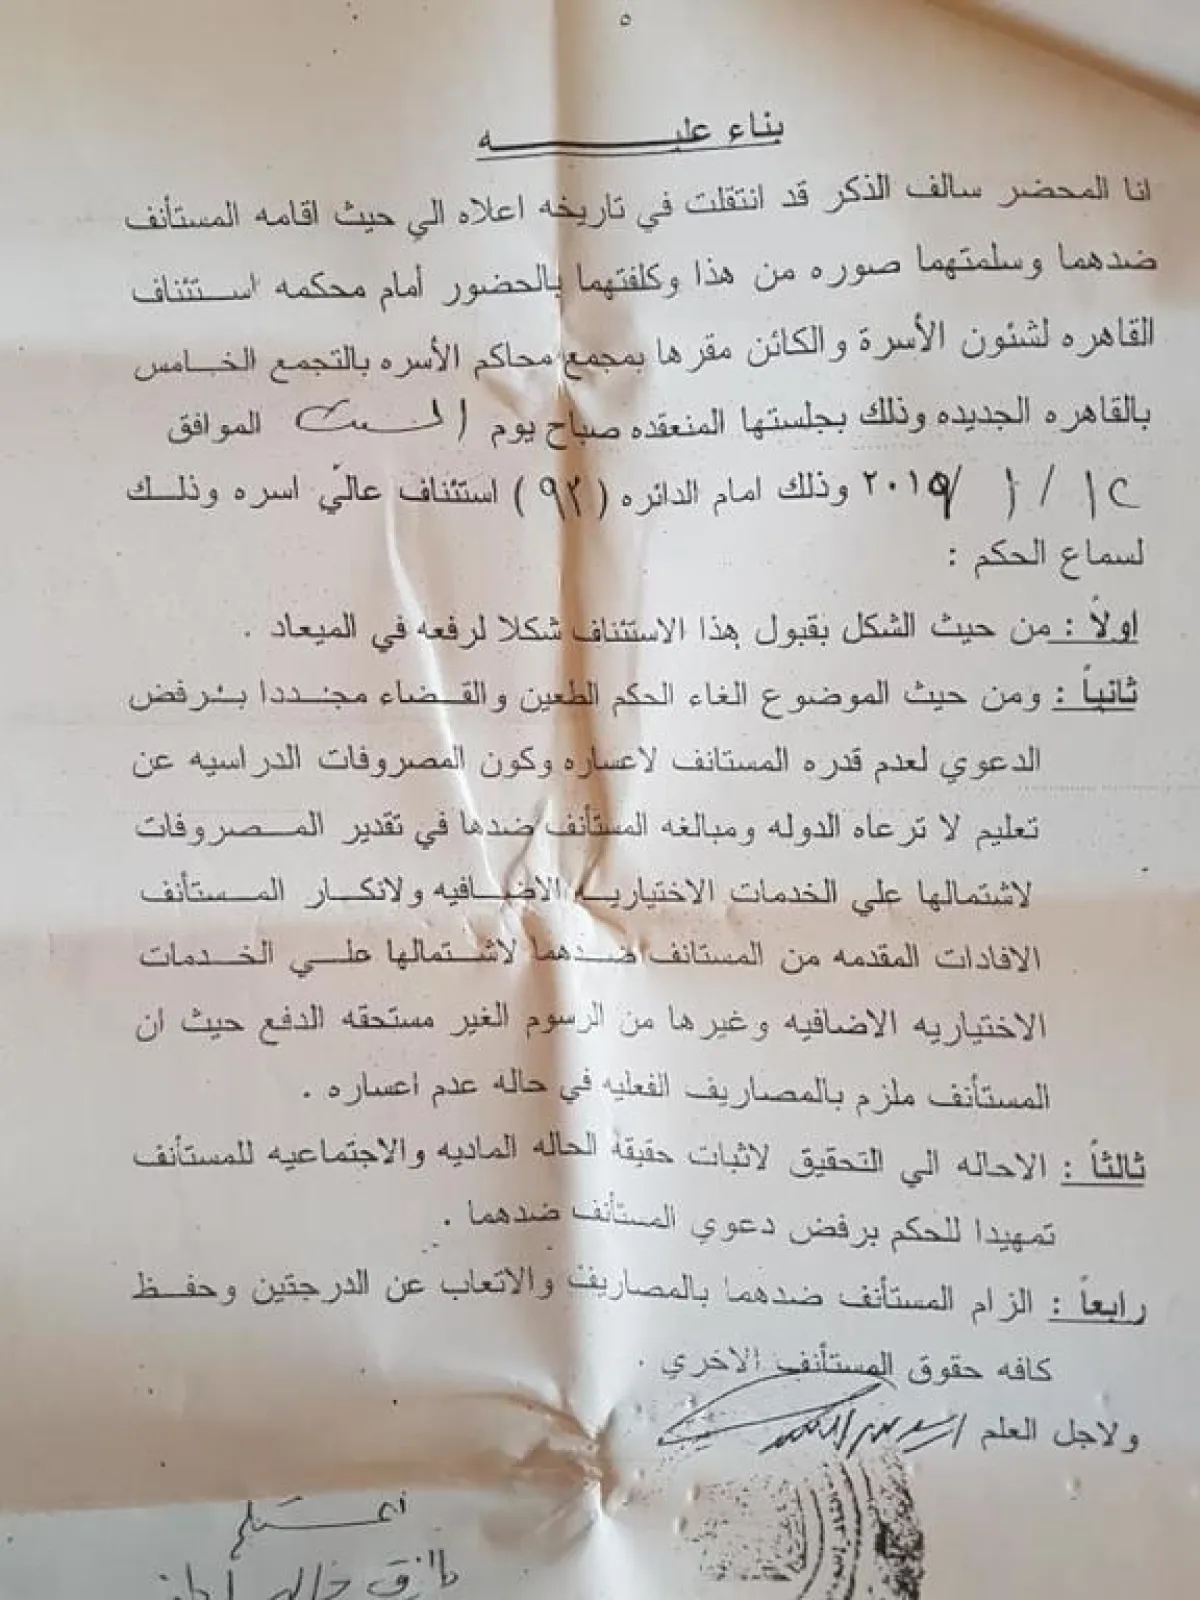 ٥
بناء عليه
انا المحضر سالف الذكر قد انتقلت في تاريخه اعلاه الي حيث اقامه المستأنف
ضدهما وسلمتهما صوره من هذا وكلفتهما بالحضور أمام محكمه استئناف
القاهره لشئون الأسرة والكائن مقرها بمجمع محاكم الأسره بالتجمع الخامس
بالقاهره الجديده وذلك بجلستها المنعقده صباح يوم السبت الموافق
١٢ / ١ / ٢٠١٩ وذلك امام الدائره (٩٢) استئناف عالي اسره وذلك
لسماع الحكم :
اولاً : من حيث الشكل بقبول هذا الاستئناف شكلا لرفعه في الميعاد .
ثانياً : ومن حيث الموضوع الغاء الحكم الطعين والقضاء مجددا برفض
الدعوي لعدم قدره المستانف لاعساره وكون المصروفات الدراسيه عن
تعليم لا ترعاه الدوله ومبالغه المستأنف ضدها في تقدير المصروفات
لاشتمالها علي الخدمات الاختياريه الاضافيه ولانكار المستأنف
الافادات المقدمه من المستانف ضدهما لاشتمالها علي الخدمات
الاختياريه الاضافيه وغيرها من الرسوم الغير مستحقه الدفع حيث ان
المستأنف ملزم بالمصاريف الفعليه في حاله عدم اعساره .
ثالثاً : الاحاله الي التحقيق لاثبات حقيقة الحاله الماديه والاجتماعيه للمستأنف
تمهيدا للحكم برفض دعوي المستأنف ضدهما .
رابعاً : الزام المستأنف ضدهما بالمصاريف والاتعاب عن الدرجتين وحفظ
كافه حقوق المستأنف الاخري .
ولاجل العلم